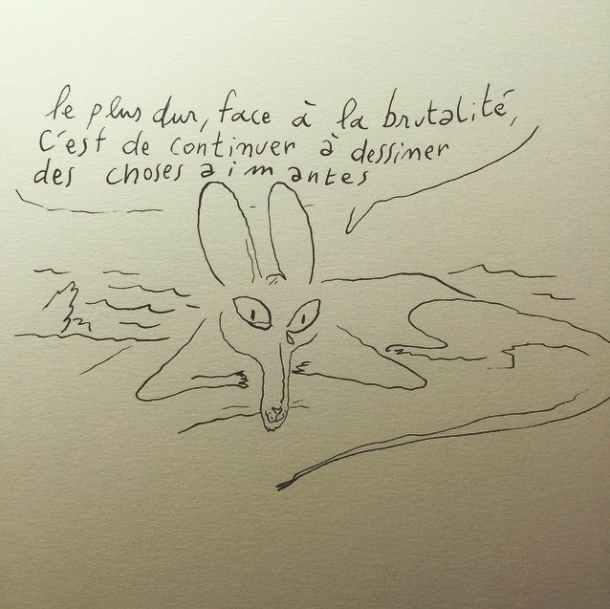 le plus dur, face à la brutalité,
C'est de continuer à dessiner
des choses aimantes